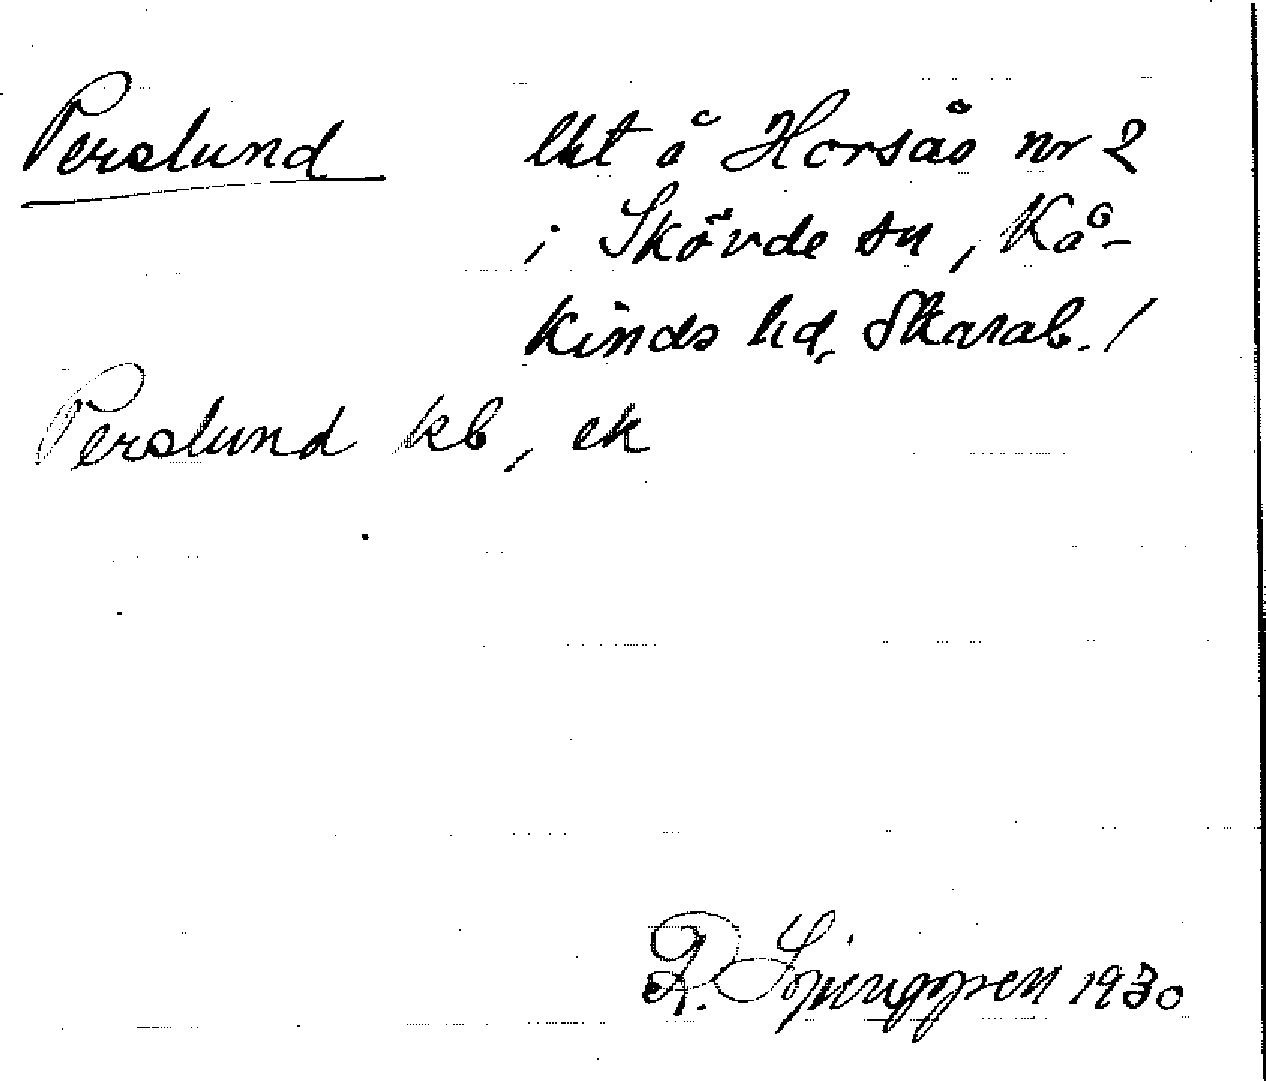 Perslund lht å Horsås nr 2
i Skövde sn, Kå-
kinds hd, Skarab. /
Perslund kb, ek
R. Ljunggren 1930